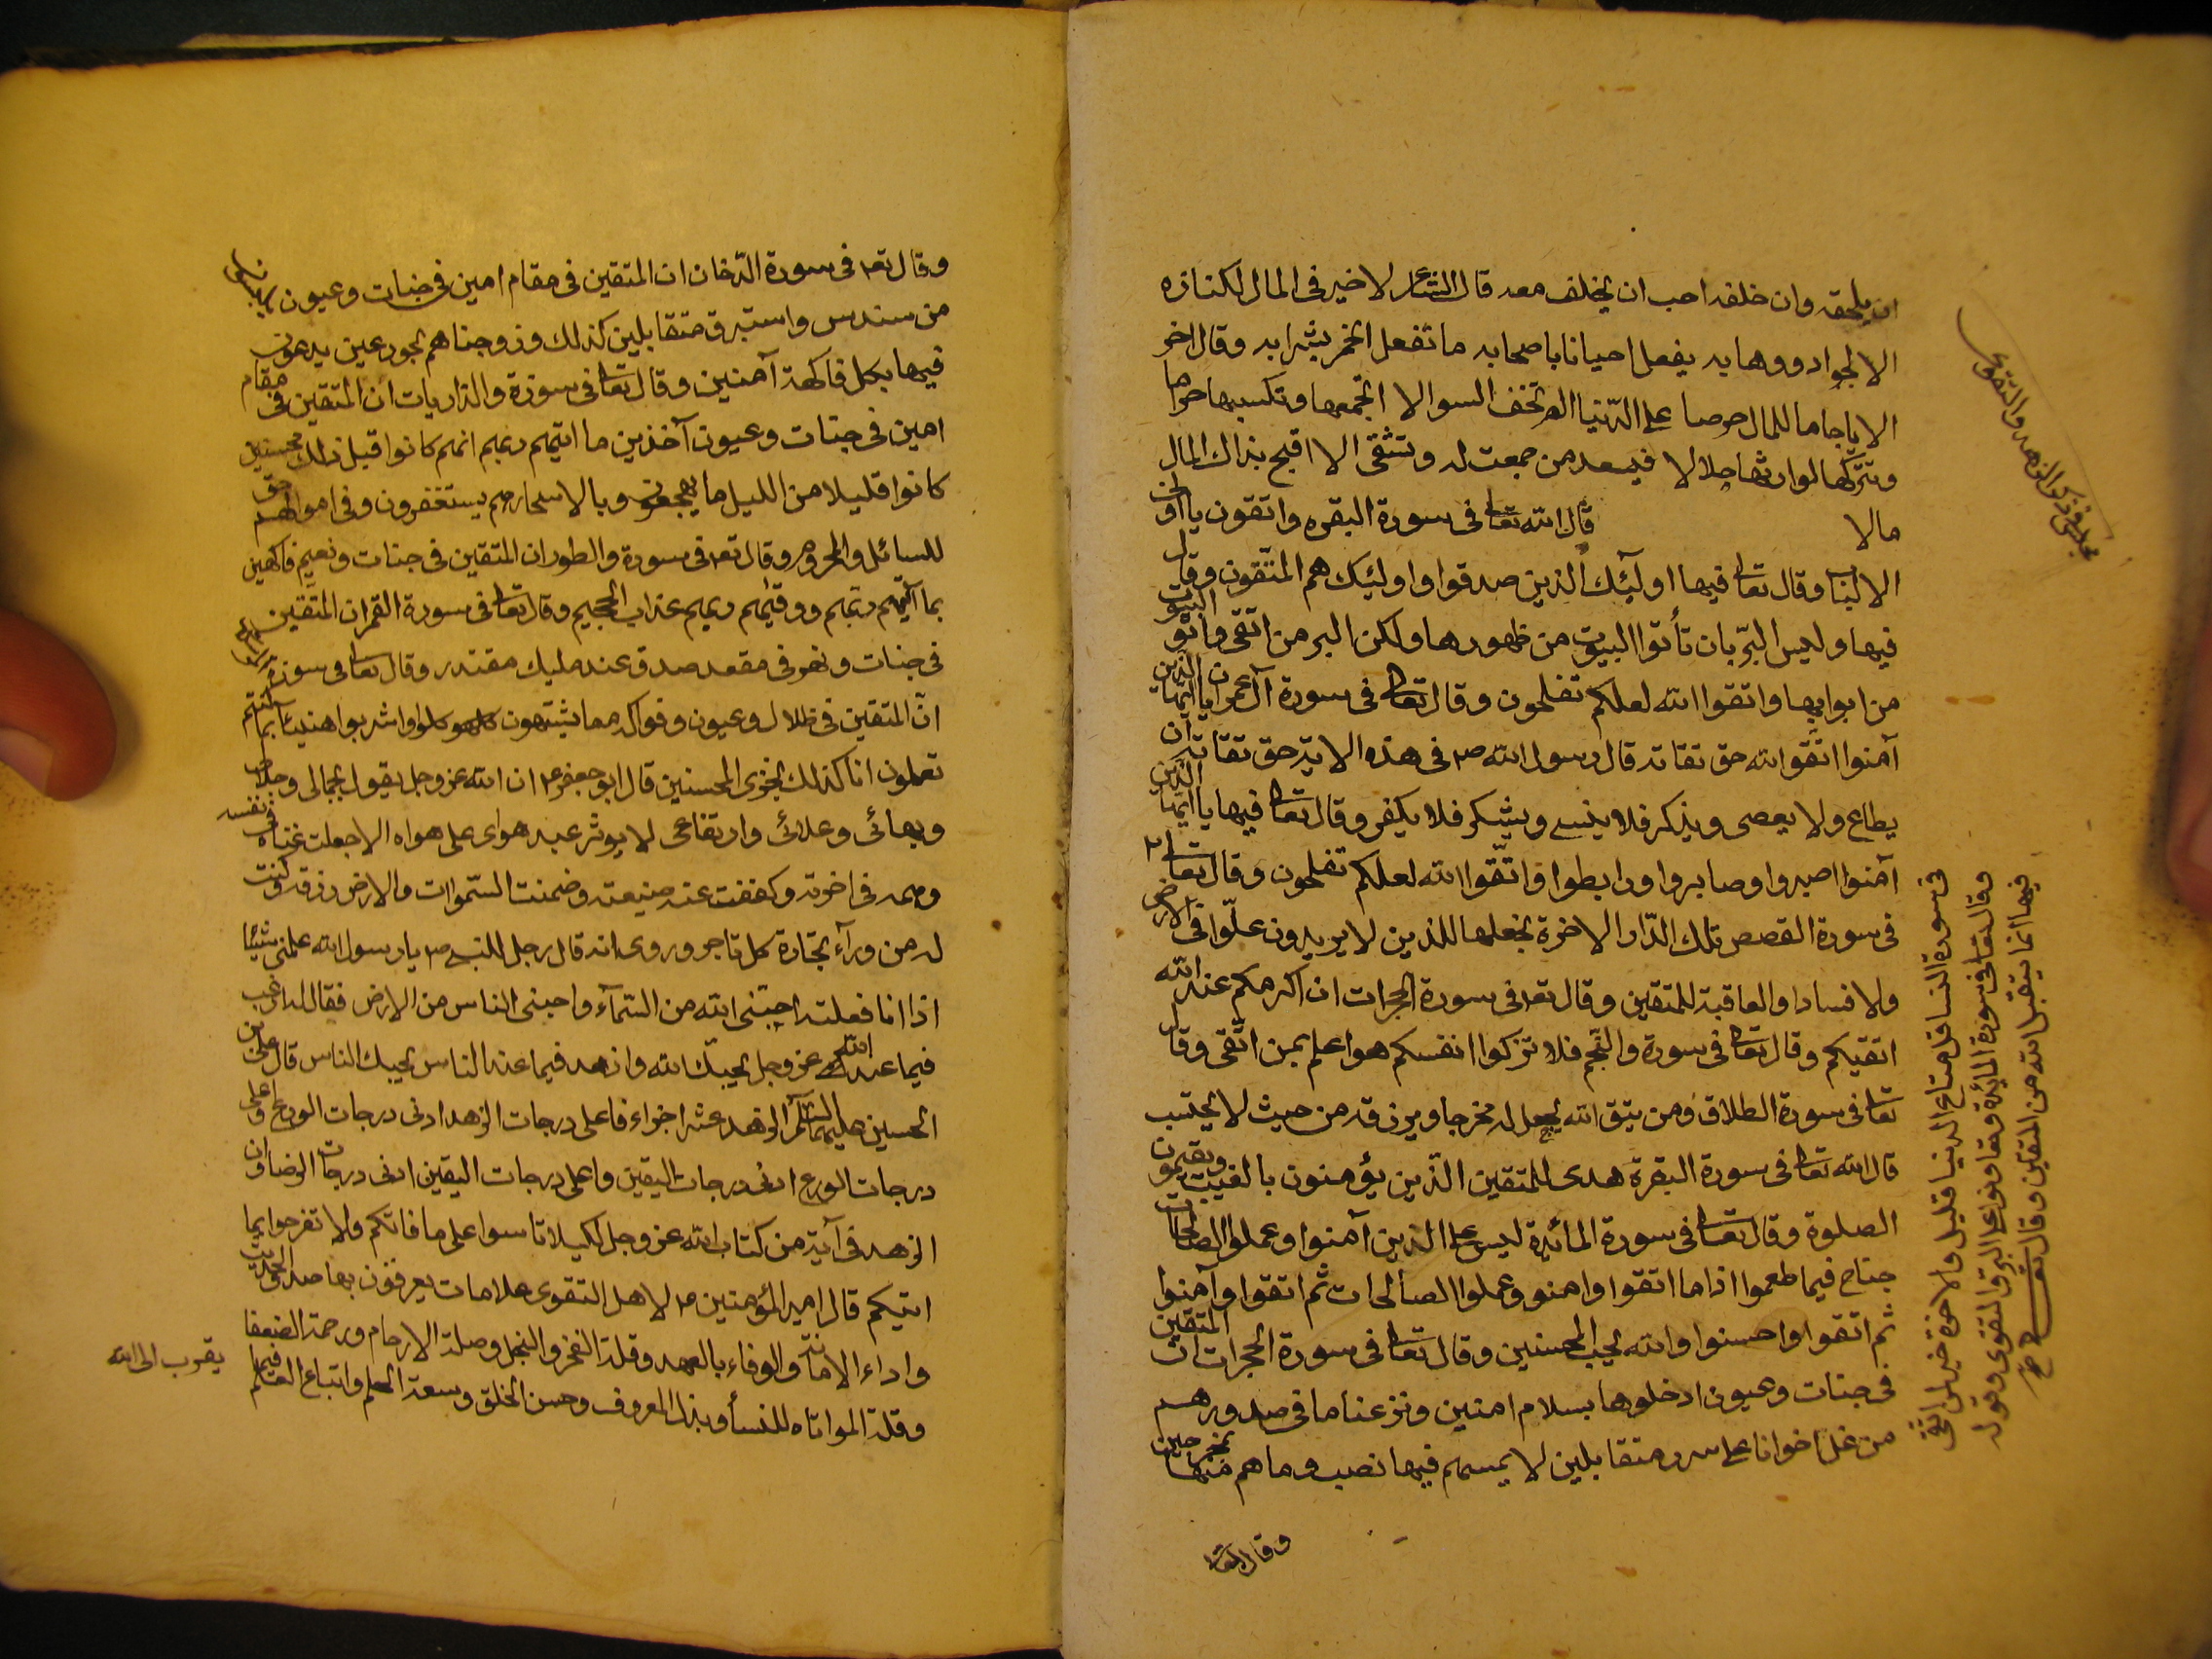 ان يلحقه وان خلفه احب ان يخلف معه قال الشاعر لا خير فى المال لكنازه
الا لجواد ووهابه يفعل احيانا باصحابه ما تفعل الخمر بشرابه وقال اخر
الا يا جامعا للمال حرصا على الدنيا الم تخف السوالا اتجمعها وتكسبها حراما
وتتركها لوارثها حلالا فيسعد من جمعت له وتشقى الا اقبح بذاك المال
مالا
قال الله تعالى فى سورة البقره واتقون يا اولى
الالباب وقال تعالى فيها اولئك الذين صدقوا واولئك هم المتقون وقال
فيها وليس البرّ بان تأتوا البيوت من ظهورها ولكن البر من اتقى واتو البيوت
من ابوابها واتقوا الله لعلكم تفلحون وقال تعالى فى سورة آل عمران يا ايها الذين
آمنوا اتقوا الله حق تقاته قال رسول الله ص فى هذه الاية حق تقاته ان
يطاع ولا يعصى ويذكر فلا ينسى ويشكر فلا يكفر وقال تعالى فيها يا ايها الذين
آمنوا اصبروا وصابروا ورابطوا واتّقوا الله لعلكم تفلحون وقال تعالى ٢
فى سورة القصص تلك الدّار الاخرة نجعلها للذين لا يريدون علوّا فى الارض
ولا فسادا والعاقبة للمتقين وقال تعم فى سورة الحجرات ان اكرمكم عند الله
اتقيكم وقال تعالى فى سورة والنجم فلا تزكوا انفسكم هو اعلم بمن اتّقى وقال
تعالى فى سورة الطلاق ومن يتق الله يجعل له مخرجا ويرزقه من حيث لا يحتسب
قال الله تعالى فى سورة البقرة هدى للمتقين الذّين يؤمنون بالغيب ويقيمون
الصلوة وقال تعالى فى سورة المائدة ليس على الذين آمنوا وعملوا الصالحات
جناح فيما طعموا اذا ما اتقوا وامنو وعملوا الصالحات ثم اتقوا وآمنوا
ثم اتقوا واحسنوا والله يحب المحسنين وقال تعالى فى سورة الحجرات ان المتقين
فى جنات وعيون ادخلوها بسلام امنين ونزعنا ما فى صدورهم
من غل اخوانا على سرر متقابلين لا يمسهم فيها نصب وما هم منها بمخرجين
وقال تعالى
مجلس فى ذكر الزهد والتقوى
فى سورة النسا قل متاع الدنيا قليل والاخرة خير لمن اتقى
وقال تعالى فى سورة المائدة وتعاونوا على البر والتقوى وقوله
فيها انما يتقبل الله من المتقين وقال تعالى صح
وقال تعم فى سورة الدّخان ان المتقين فى مقام امين فى جنات وعيون يلبسون
من سندس واستبرق متقابلين كذلك وزوجناهم بحور عين يدعون
فيها بكل فاكهة آمنين وقال تعالى فى سورة والذاريات ان المتقين فى مقام
امين فى جنات وعيون آخذين ما اتيهم ربهم انهم كانوا قبل ذلك محسنين
كانوا قليلا من الليل ما يهجعون وبالاسحار هم يستغفرون وفى اموالهم حق
للسائل والمحروم وقال تعم فى سورة والطور ان المتقين فى جنات ونعيم فاكهين
بما آتيهم ربهم ووقيهم ربهم عذاب الجحيم وقال تعالى فى سورة القمر ان المتقين
فى جنات ونهر فى مقعد صدق عند مليك مقتدر وقال تعالى فى سورة
انّ المتقين فى ظلال وعيون وفواكه مما يشتهون كلوا واشربوا هنيئا بما كنتم
تعملون انا كذلك نجزى المحسنين قال ابو جعفر ع ان الله عز وجل يقول بجمالى وجلالى
وبهائى وعلائى وارتفاعى لا يوثر عبد هواى على هواه الا جعلت غناه فى نفسه
وهمه فى اخرته وكففت عنه ضيعته وضمنت السّموات والارض رزقه وكنت
له من ورآء تجارة كل تاجر وروى انه قال رجل للنبى ص يا رسول الله علمنى شيئا
اذا انا فعلته احبّنى الله من السّمآء واحبنى الناس من الارض فقال له ارغب
فيما عند الله عز وجل يحبّك الله وازهد فيما عند الناس يحبك الناس قال على بن
الحسين عليهما السّلم الزهد عشر اجزاء فاعلى درجات الزهد ادنى درجات الورع واعلى
درجات الورع ادنى درجات اليقين واعلى درجات اليقين ادنى درجات الرضا وان
الزهد فى آية من كتاب الله عز وجل لكيلا تاسوا على ما فاتكم ولا تفرحوا بما
اتيكم قال امير المؤمنين ع لاهل التقوى علامات يعرفون بها صدق الحديث
واداء الامانة والوفاء بالعهد وقلة الفخر والبخل وصلة الارحام ورحمة الضعفا
وقلة المواتاه للنسأ وبذل المعروف وحسن الخلق وسعة الحلم واتباع العلم فيما
يقرب الى الله